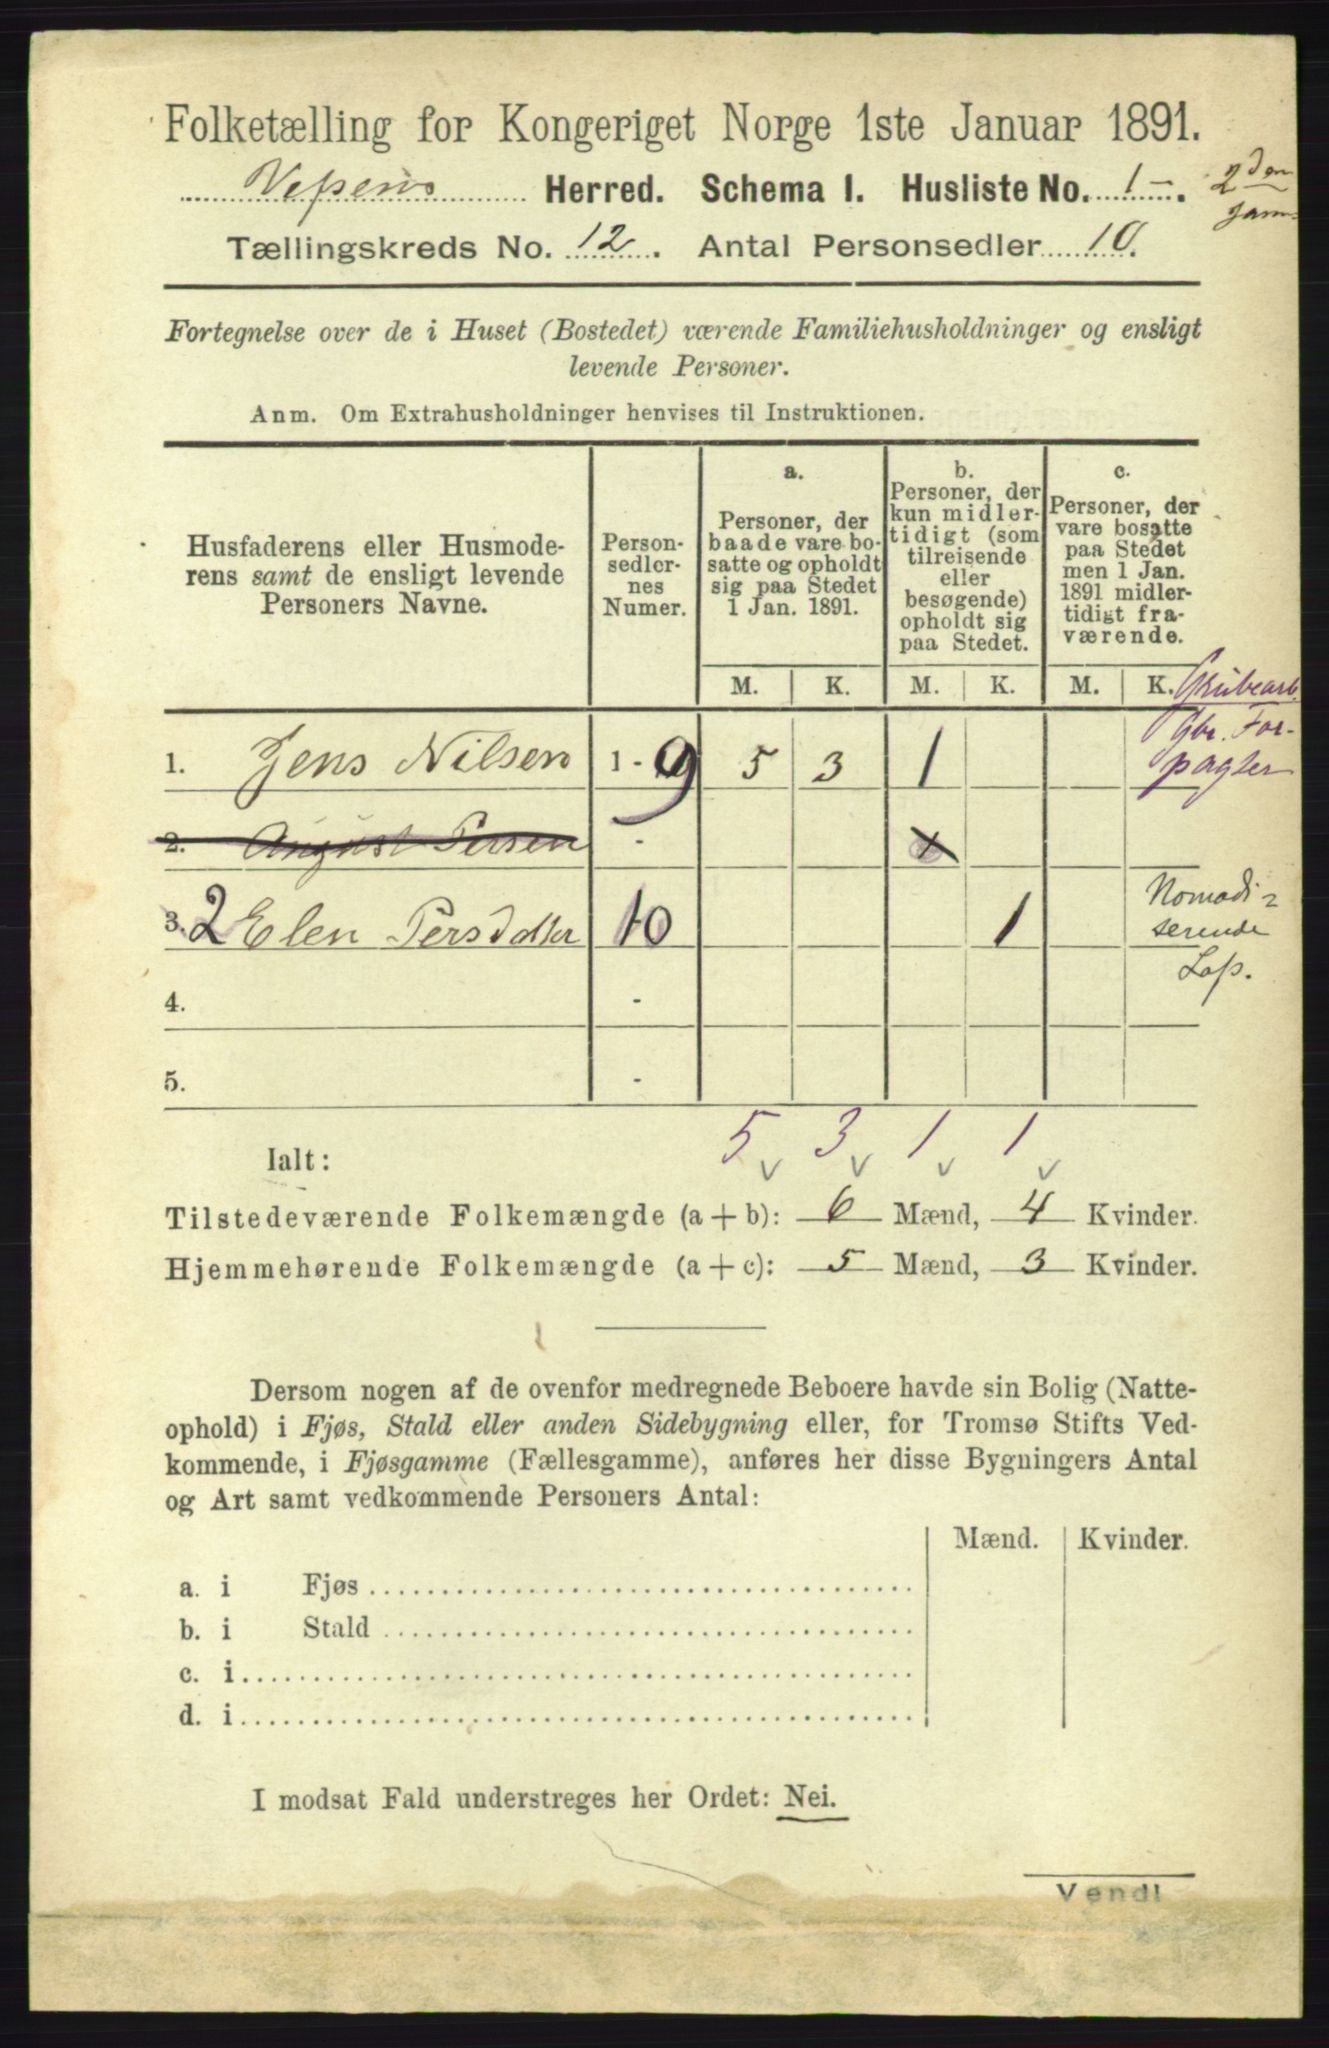 Folketælling for Kongeriget Norge 1ste Januar 1891.
Vefsens Herred. Schema I. Husliste No. 1 - . 2den
Tællingskreds No. 12. Antal Personsedler 10.
Fortegnelse over de i Huset (Bostedet) værende Familiehusholdninger og ensligt
levende Personer.
Anm. Om Extrahusholdninger henvises til Instruktionen.
Husfaderens eller Husmode-
rens samt de ensligt levende
Personers Navne.
Person-
sedler-
nes
Numer.
a.
Personer, der
baade vare bo-
satte og opholdt
sig paa Stedet
1 Jan. 1891.
b.
Personer, der
kun midler-
tidigt (som
tilreisende
eller
besøgende)
opholdt sig
paa Stedet.
c.
Personer, der
vare bosatte
paa Stedet
men 1 Jan.
1891 midler-
tidigt fra-
værende.
M. K. M. K. M. K.
Grubearb.
Gbr. For-
pagter
1. Jens Nilsen 1 - 9 5 3 1
2. August Persen - x
3. 2 Elen Persdatter 10 1
Nomadi-
serende
Lap.
4. -
5. -
5 3 1 1
Ialt:
Tilstedeværende Folkemængde (a + b): 6 Mænd, 4 Kvinder.
Hjemmehørende Folkemængde (a + c): 5 Mænd, 3 Kvinder.
Dersom nogen af de ovenfor medregnede Beboere havde sin Bolig (Natte-
ophold) i Fjøs, Stald eller anden Sidebygning eller, for Tromsø Stifts Ved-
kommende, i Fjøsgamme (Fællesgamme), anføres her disse Bygningers Antal
og Art samt vedkommende Personers Antal:
Mænd. Kvinder.
a. i Fjøs
b. i Stald
c. i
d. i
I modsat Fald understreges her Ordet: Nei.
Vend!